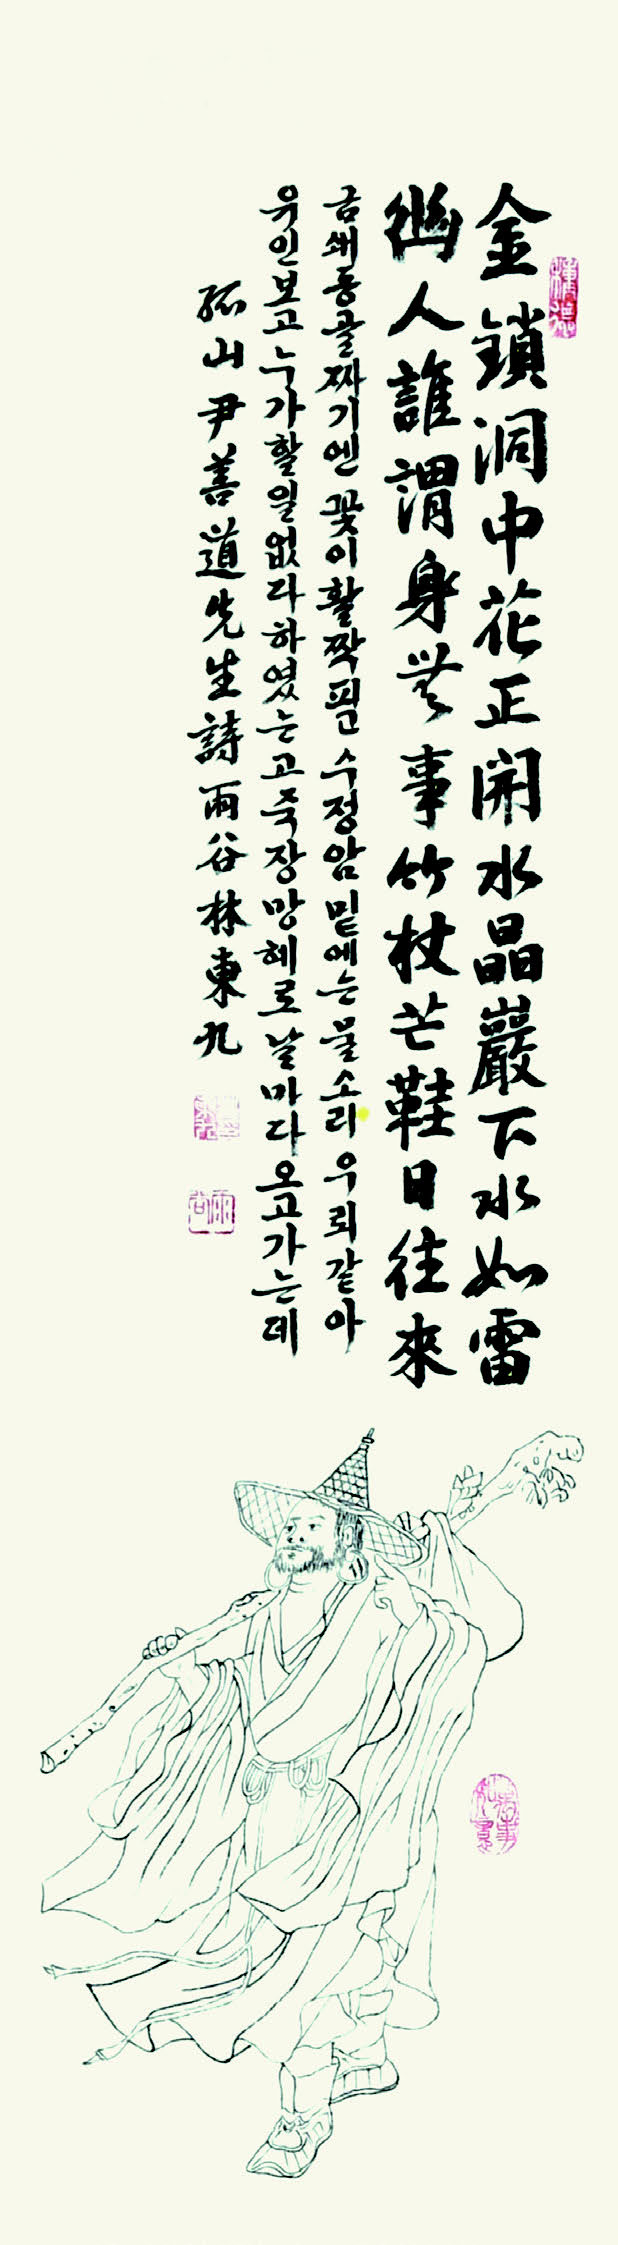 金鎖洞中花正開水晶巖下水如雷
幽人誰謂身無事竹杖芒鞋日往來
금쇄동골짜기엔 꽃이활짝핀 수정암밑에는물소리 우뢰같아
유인보고누가할일없다하였는고죽장망혜로날마다오고가는데
孤山尹善道先生詩雨谷林東九